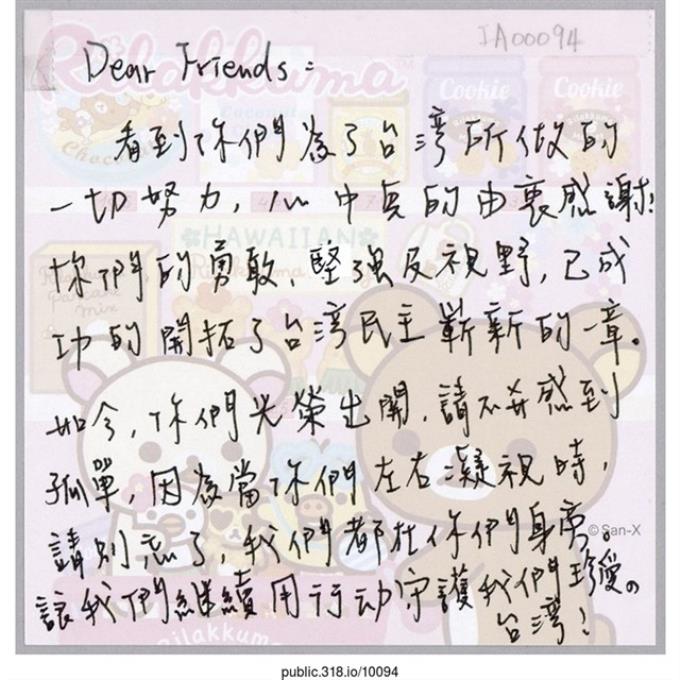 JA00094
Dear Friends:
看到你們為了台湾所做的
一切努力, 心中真的由衷感謝!
你們的勇敢、堅強及視野, 已成
功的開拓了台湾民主嶄新的一章。
如今, 你們光榮出關, 請不要感到
孤單, 因為當你們左右凝視時,
請別忘了, 我們都在你們身旁。
讓我們繼續用行动守護我們珍愛的
台湾!
Rilakkuma
Cookie
Cookie
HAWAIIAN
©San-X
Rilakkuma
public.318.io/10094